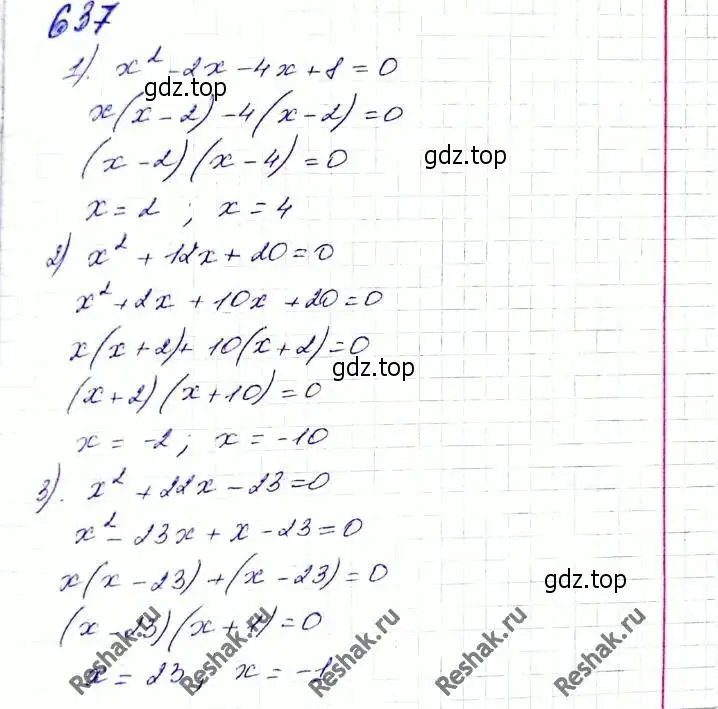 637
1). x² - 2x - 4x + 8 = 0
gdz.top
x(x - 2) - 4(x - 2) = 0
(x - 2)(x - 4) = 0
gdz.top
x = 2 ; x = 4
2) x² + 12x + 20 = 0
x² + 2x + 10x + 20 = 0
x(x + 2) + 10(x + 2) = 0
gdz.top
(x + 2)(x + 10) = 0
x = -2 ; x = -10
3). x² + 22x - 23 = 0
x² - 23x + x - 23 = 0
x(x - 23) + (x - 23) = 0
gdz.top
(x - 23)(x + 1) = 0
x = 23 ; x = -1
Reshak.ru Reshak.ru Reshak.ru Reshak.ru Reshak.ru